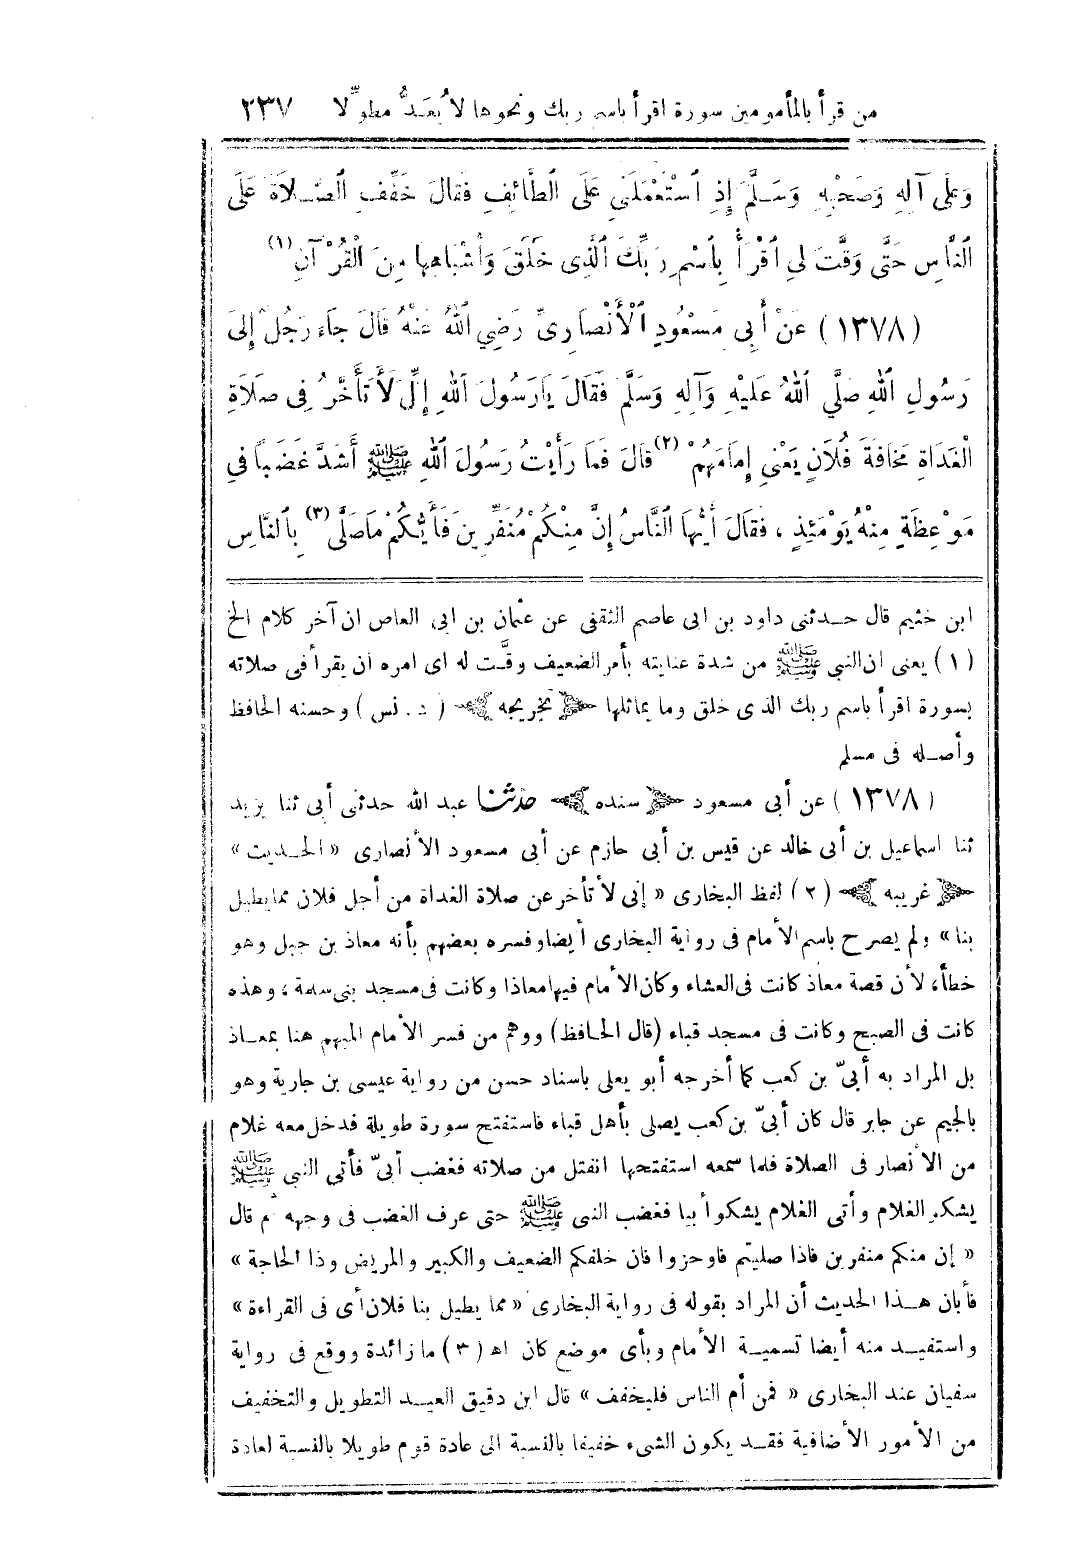 من قرأ بالمأمومين سورة اقرأ باسم ربك ونحوها لا يُعَدُّ مطوِّلا ٢٣٧
وَعَلَى آلِهِ وَصَحْبِهِ وَسَلَّمَ إِذِ ٱسْتَعْمَلَنِي عَلَى ٱلطَّائِفِ فَقَالَ خَفِّفِ ٱلصَّلَاةَ عَلَى
ٱلنَّاسِ حَتَّى وَقَّتَ لِي ٱقْرَأْ بِٱسْمِ رَبِّكَ ٱلَّذِى خَلَقَ وَأَشْبَاهِهَا مِنَ ٱلْقُرْآنِ (١)
(١٣٧٨) عَنْ أَبِى مَسْعُودٍ ٱلْأَنْصَارِىِّ رَضِيَ ٱللهُ عَنْهُ قَالَ جَاءَ رَجُلٌ إِلَى
رَسُولِ ٱللهِ صَلَّي ٱللهُ عَلَيْهِ وَآلِهِ وَسَلَّمَ فَقَالَ يَارَسُولَ ٱللهِ إِنِّي لَأَتَأَخَّرُ فِى صَلَاةِ
ٱلْغَدَاةِ مَخَافَةَ فُلَانٍ يَعْنِي إِمَامَهُمْ (٢) قَالَ فَمَا رَأَيْتُ رَسُولَ ٱللهِ ﷺ أَشَدَّ غَضَبًا فِي
مَوْعِظَةٍ مِنْهُ يَوْمَئِذٍ ، فَقَالَ أَيُّهَا ٱلنَّاسُ إِنَّ مِنْكُمْ مُنَفِّرِينَ فَأَيُّكُمْ مَاصَلَّى (٣) بِٱلنَّاسِ
ابن خثيم قال حدثنى داود بن ابى عاصم الثقفى عن عثمان بن ابى العاص ان آخر كلام الخ
(١) يعنى ان النبي ﷺ من شدة عنايته بأمر الضعيف وقَّت له اى امره ان يقرأ فى صلاته
بسورة اقرأ باسم ربك الذى خلق وما يماثلها تخريجه (د . نس) وحسنه الحافظ
وأصله فى مسلم
(١٣٧٨) عن أبى مسعود سنده حدثنا عبد الله حدثنى أبى ثنا يزيد
ثنا اسماعيل بن أبى خالد عن قيس بن أبى حازم عن أبى مسعود الأنصارى «الحديث»
غريبه (٢) لفظ البخارى « إنى لأتأخر عن صلاة الغداة من أجل فلان مما يطيل
بنا» ولم يصرح باسم الأمام فى رواية البخارى أيضا وفسره بعضهم بأنه معاذ بن جبل وهو
خطأ، لأن قصة معاذ كانت فى العشاء وكان الأمام فيها معاذا وكانت فى مسجد بنى سلمة، وهذه
كانت فى الصبح وكانت فى مسجد قباء (قال الحافظ) ووهم من فسر الأمام المبهم هنا بمعاذ
بل المراد به أبىّ بن كعب كما أخرجه أبو يعلى باسناد حسن من رواية عيسى بن جارية وهو
بالجيم عن جابر قال كان أبىّ بن كعب يصلى بأهل قباء فاستفتح سورة طويلة فدخل معه غلام
من الأنصار فى الصلاة فلما سمعه استفتحها انفتل من صلاته فغضب أبىّ فأتى النبى ﷺ
يشكو الغلام وأتى الغلام يشكو أبيا فغضب النبى ﷺ حتى عرف الغضب فى وجهه ثم قال
« إن منكم منفرين فاذا صليتم فاوجزوا فان خلفكم الضعيف والكبير والمريض وذا الحاجة »
فأبان هذا الحديث أن المراد بقوله فى رواية البخارى « مما يطيل بنا فلان أى فى القراءة »
واستفيد منه أيضا تسمية الأمام وبأى موضع كان اﻫ (٣) ما زائدة ووقع فى رواية
سفيان عند البخارى « فمن أم الناس فليخفف » قال ابن دقيق العيد التطويل والتخفيف
من الأمور الأضافية فقد يكون الشىء خفيفا بالنسبة الى عادة قوم طويلا بالنسبة لعادة